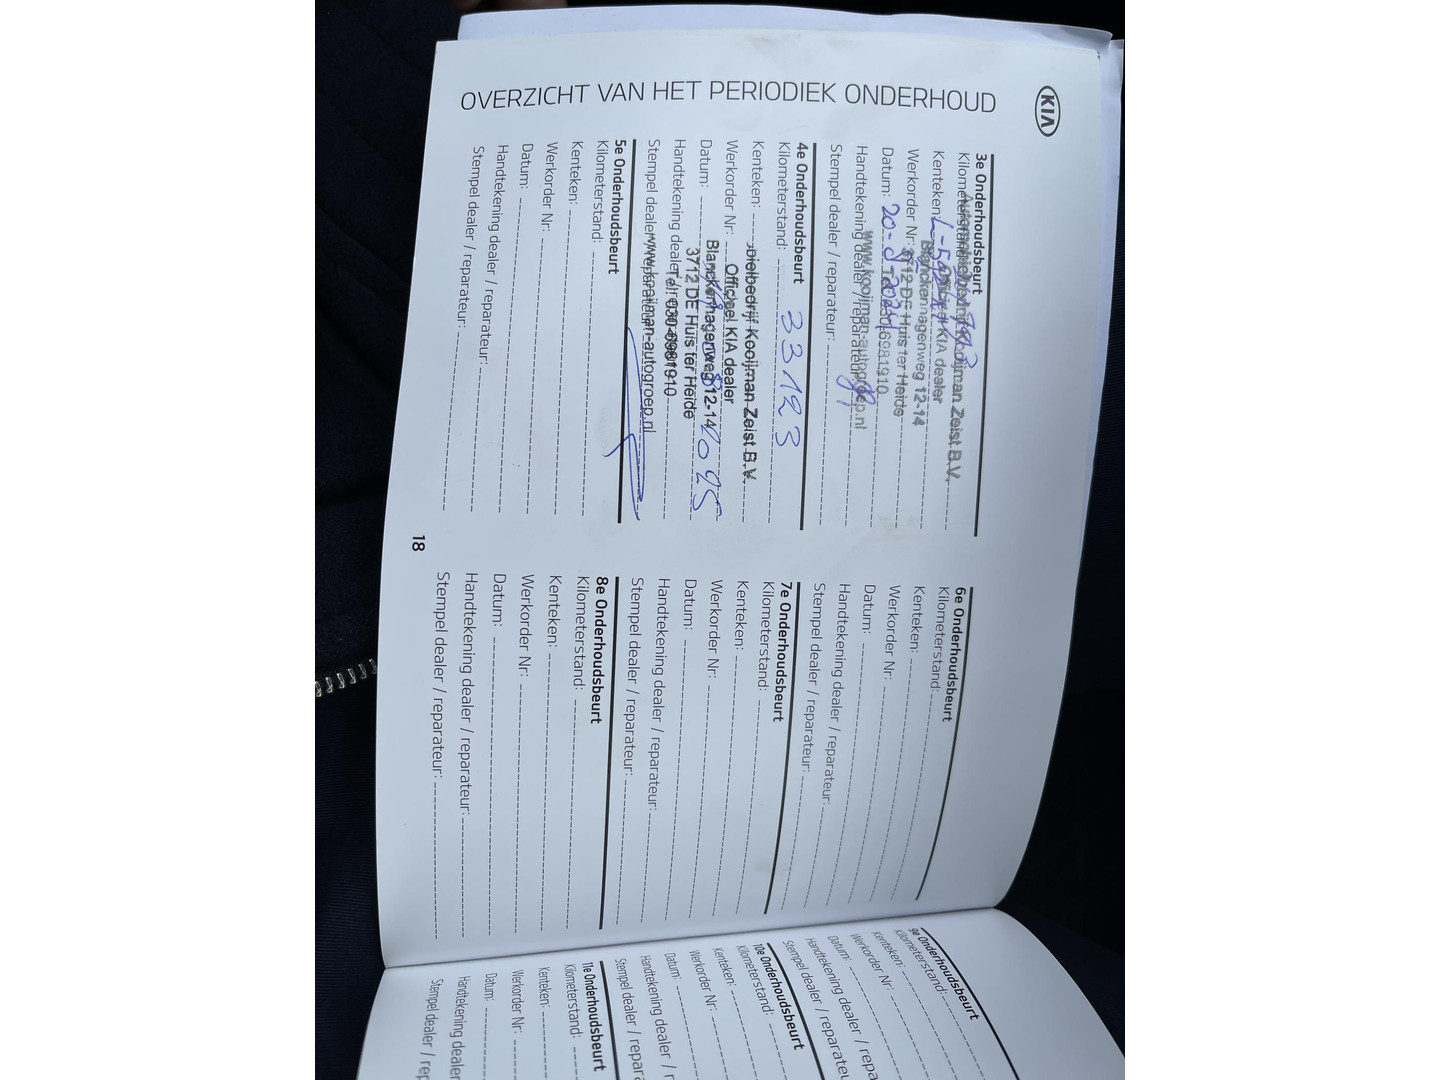 KIA
OVERZICHT VAN HET PERIODIEK ONDERHOUD
3e Onderhoudsbeurt
Kilometerstand:
Automobielbedrijf Kooijman Zeist B.V.
Kenteken:
Officieel KIA dealer
Werkorder Nr:
Blanckenhagenweg 12-14
3712 DE Huis ter Heide
Datum: 20-
2024
Tel. 030-6981910
Handtekening dealer / reparateur:
www.kooijman-autogroep.nl
Stempel dealer / reparateur:
4e Onderhoudsbeurt
Kilometerstand: 33123
Kenteken:
obielbedrijf Kooijman Zeist B.V.
Werkorder Nr:
Officieel KIA dealer
Datum: 2025
Blanckenhagenweg 12-14
3712 DE Huis ter Heide
Handtekening dealer / reparateur:
Tel. 030-6981910
Stempel dealer / reparateur:
www.kooijman-autogroep.nl
5e Onderhoudsbeurt
Kilometerstand:
Kenteken:
Werkorder Nr:
Datum:
Handtekening dealer / reparateur:
Stempel dealer / reparateur:
6e Onderhoudsbeurt
Kilometerstand:
Kenteken:
Werkorder Nr:
Datum:
Handtekening dealer / reparateur:
Stempel dealer / reparateur:
7e Onderhoudsbeurt
Kilometerstand:
Kenteken:
Werkorder Nr:
Datum:
Handtekening dealer / reparateur:
Stempel dealer / reparateur:
8e Onderhoudsbeurt
Kilometerstand:
Kenteken:
Werkorder Nr:
Datum:
Handtekening dealer / reparateur:
Stempel dealer / reparateur:
18
9e Onderhoudsbeurt
Kilometerstand:
Kenteken:
Werkorder Nr:
Datum:
Handtekening dealer / repa
Stempel dealer / reparateu
10e Onderhoudsbeurt
Kilometerstand:
Kenteken:
Werkorder Nr:
Datum:
Handtekening dealer / repa
Stempel dealer / repara
11e Onderhoudsbeurt
Kilometerstand:
Kenteken:
Werkorder Nr:
Datum:
Handtekening dealer
Stempel dealer / rep